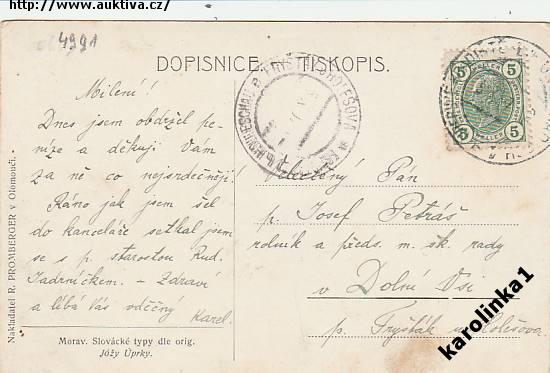 http://www.auktiva.cz/
4991
DOPISNICE. TISKOPIS.
5 5
5 5
Milení!
Dnes jsem obdržel pe-
níze a děkuji Vám
za ně co nejsrdečněji!
Ráno jak jsem šel
do kanceláře setkal jsem
se s p. starostou Rud.
Jadrníčkem. - Zdraví
a líbá Vás vděčný
Karel.
Vzácný Pán
p. Josef Petráš
rolník a předs. m. šk. rady
v Dolní Vsi
p. Fryšták u Holešova.
Nakladatel R. PROMBERGER v Olomouci.
Morav. Slovácké typy dle orig.
Jóžy Úprky.
karolinka1